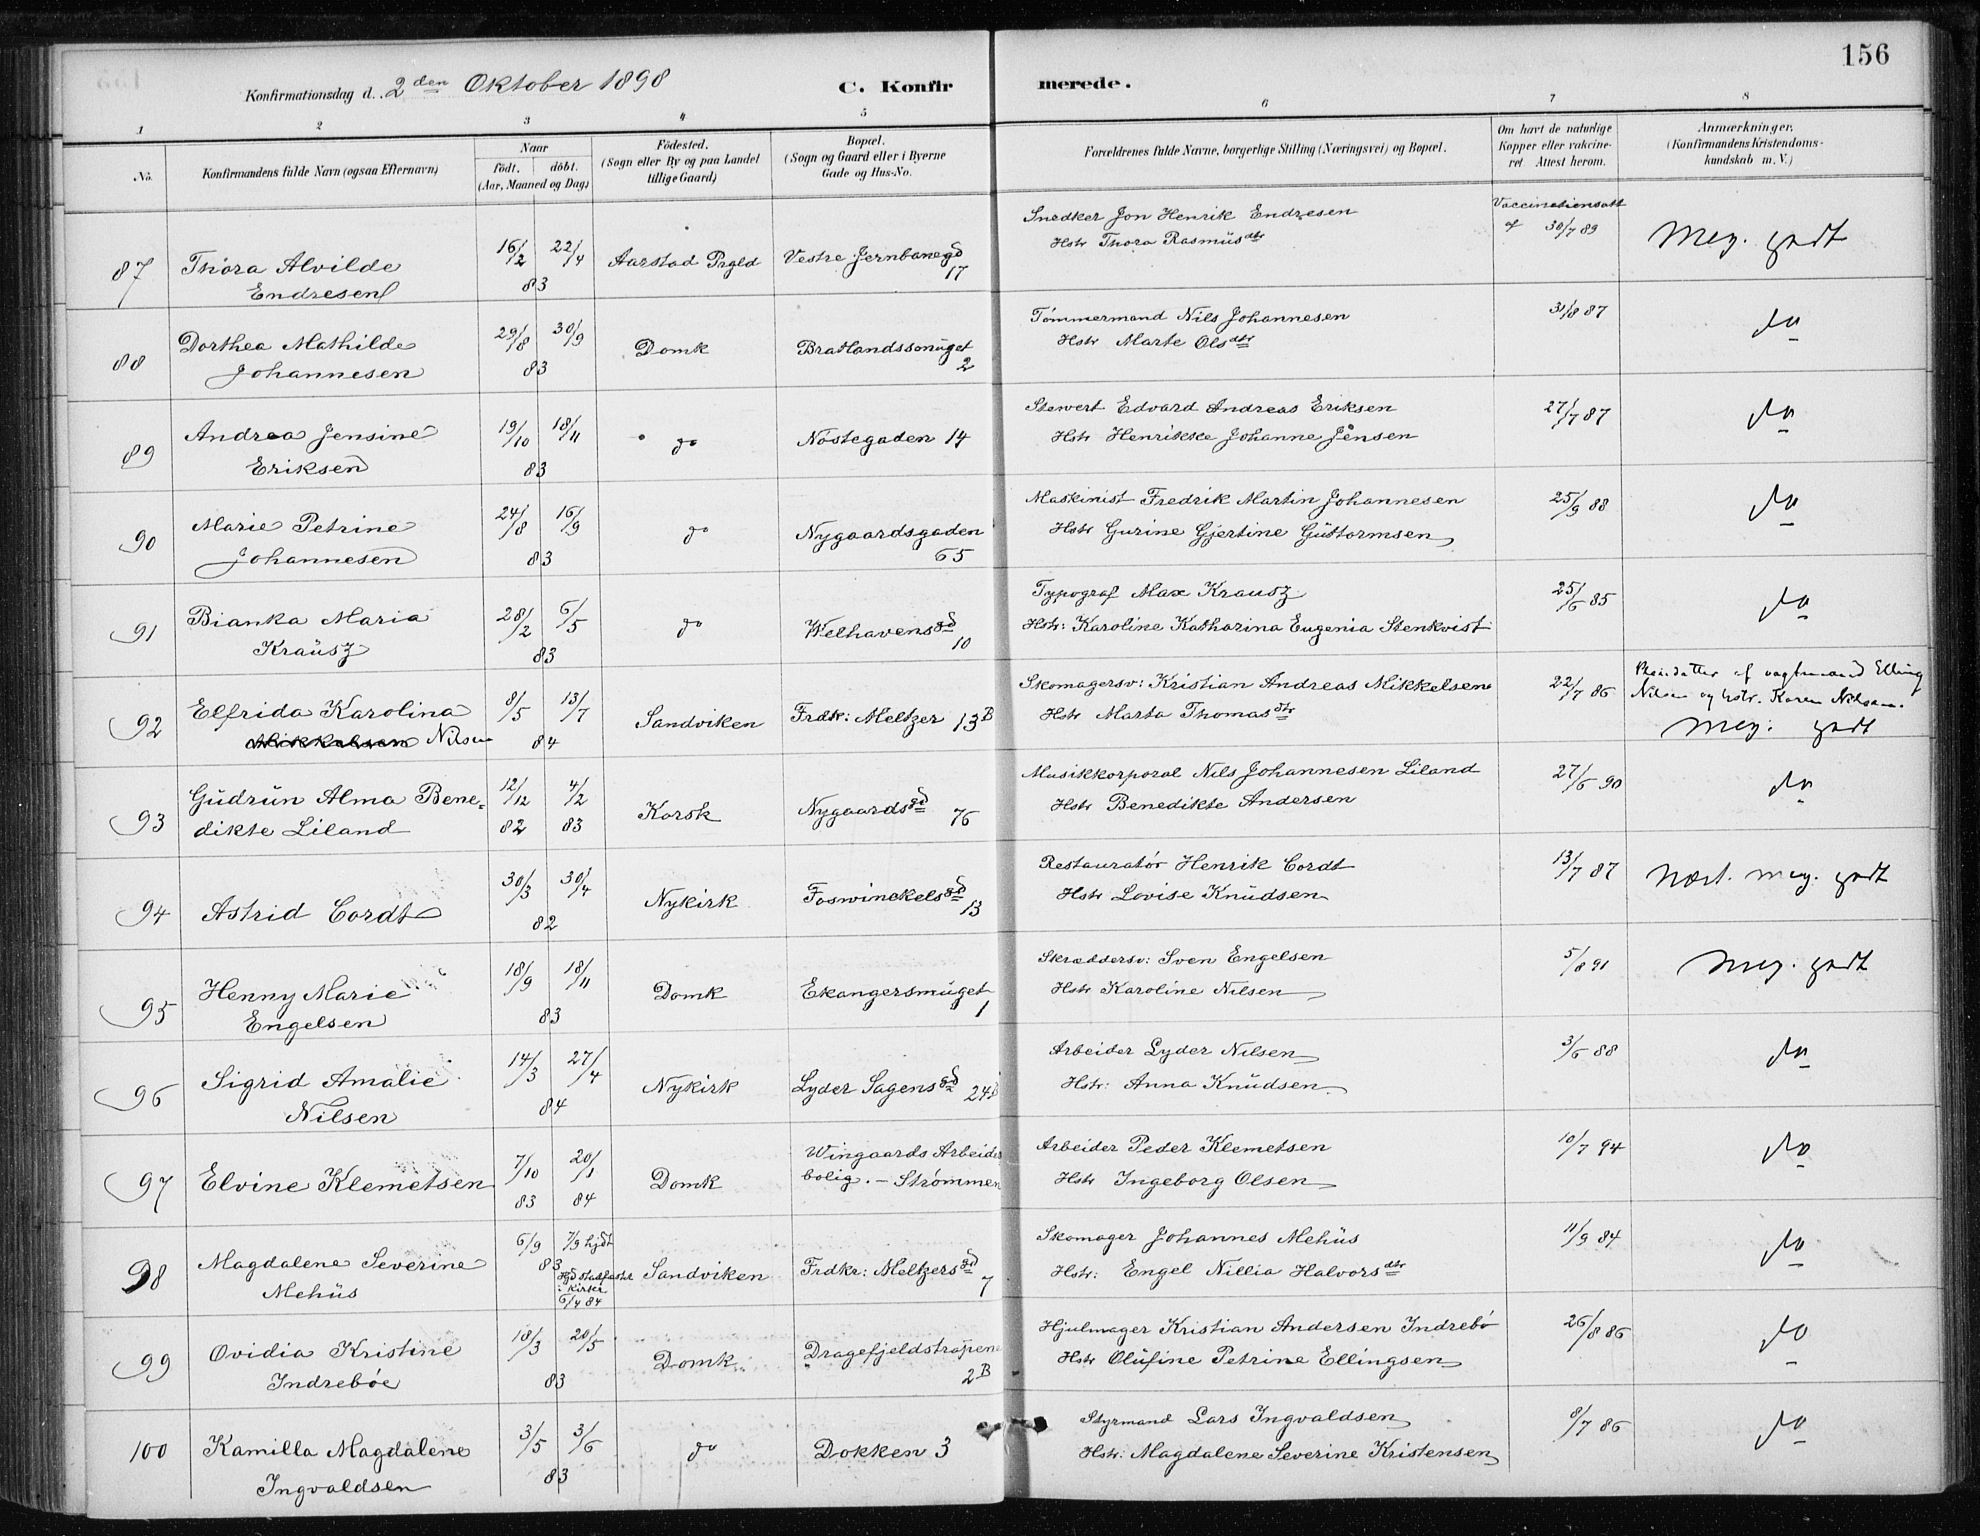 156
Konfirmationsdag d. 2den Oktober 1898
C. Konfirmerede.
1 2 3 4 5 6 7 8
No.
Konfirmandens fulde Navn (ogsaa Efternavn)
Naar
födt. döbt.
(Aar, Maaned og Dag)
Födested.
(Sogn eller By og paa Landet
tillige Gaard)
Bopæl.
(Sogn og Gaard eller i Byerne
Gade og Hus-No.
Forældrenes fulde Navne, borgerlige Stilling (Næringsvei) og Bopæl.
Om havt de naturlige
Kopper eller vakcine-
ret. Attest herom.
Anmærkninger.
(Konfirmandens Kristendoms-
kundskab m. V.)
87 Thora Alvilde
Endresen
16/2 22/4
83
Aarstad Prgld
Vestre Jernbanegd
17
Snedker Jon Henrik Endresen
Hstr Thora Rasmusdtr
Vaccinationsatt
af 30/7 89
Meg. godt
88 Dorthea Mathilde
Johannesen
29/8 30/9
83
Domk
Bratlandssmuget
2
Tømmermand Nils Johannesen
Hstr Marte Olsdtr
31/8 87
do
89 Andrea Jensine
Eriksen
19/10 18/11
83
do
Nöstegaden 14
Stewert Edvard Andreas Eriksen
Hstr Henrikke Johanne Jensen
27/7 87
do
90 Marie Petrine
Johannesen
24/8 16/9
83
do
Nygaardsgaden
65
Maskinist Fredrik Martin Johannesen
Hstr Gurine Gjertine Guttormsen
25/9 88
do
91 Bianka Maria
Krausz
28/2 6/5
83
do
Welhavensgd
10
Typograf Max Krausz
Hstr: Karoline Katharina Eugenia Stenkvist
25/6 85
do
92 Elfrida Karolina
Mikkelsen Nilsen
8/5 13/7
84
Sandviken
Frdk: Meltzer 13B
Skomagersv: Kristian Andreas Mikkelsen
Hstr Marta Thomasdtr
22/7 86
Pleiedatter af vagtmand Elling
Nilsen og hstr. Karen Nilsen.
Meg. godt
93 Gudrun Alma Bene-
dikte Liland
12/12 4/2
82 83
Korsk
Nygaardsgd
76
Musikkorporal Nils Johannesen Liland
Hstr Benedikte Andersen
27/6 90
do
94 Astrid Cordt
30/3 30/4
82
Nykirk
Foswinckelsgd
13
Restauratör Henrik Cordt
Hstr Lovise Knudsen
13/7 87
Næst. meg. godt
95 Henny Marie
Engelsen
18/9 18/11
83
Domk
Ekangersmuget
1
Skræddersv: Sven Engelsen
Hstr Karoline Nilsen
5/8 91
Meg. godt
96 Sigrid Amalie
Nilsen
14/3 27/4
84
Nykirk
Lyder Sagensgd 24B
Arbeider Lyder Nilsen
Hstr: Anna Knudsen
3/6 88
do
97 Elvine Klemetsen
7/10 20/1
83 84
Domk
Wingaards Arbeider
bolig. – Strømmen
Arbeider Peder Klemetsen
Hstr Ingeborg Olsen
10/7 94
do
98 Magdalene Severine
Mehus
6/9 7/9 hjdt
83
Hjd stadfæstet
i Kirken
6/4 84
Sandviken
Frdkr: Meltzersgd
7
Skomager Johannes Mehus
Hstr: Engel Nillia Halvorsdtr
11/9 84
do
99 Ovidia Kristine
Indrebøe
18/3 20/5
83
Domk
Dragefjeldstrapene
2B
Hjulmager Kristian Andersen Indrebö
Hstr Olufine Petrine Ellingsen
26/8 86
do
100 Kamilla Magdalene
Ingvaldsen
3/5 3/6
83
do
Dokken 3
Styrmand Lars Ingvaldsen
Hstr: Magdalene Severine Kristensen
8/7 86
do